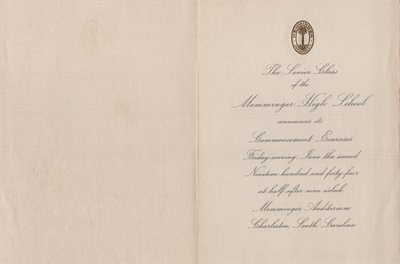 The Senior Class
of the
Memminger High School
announces its
Commencement Exercises
Friday evening, June the second
Nineteen hundred and forty-four
at half after nine o'clock
Memminger Auditorium
Charleston, South Carolina